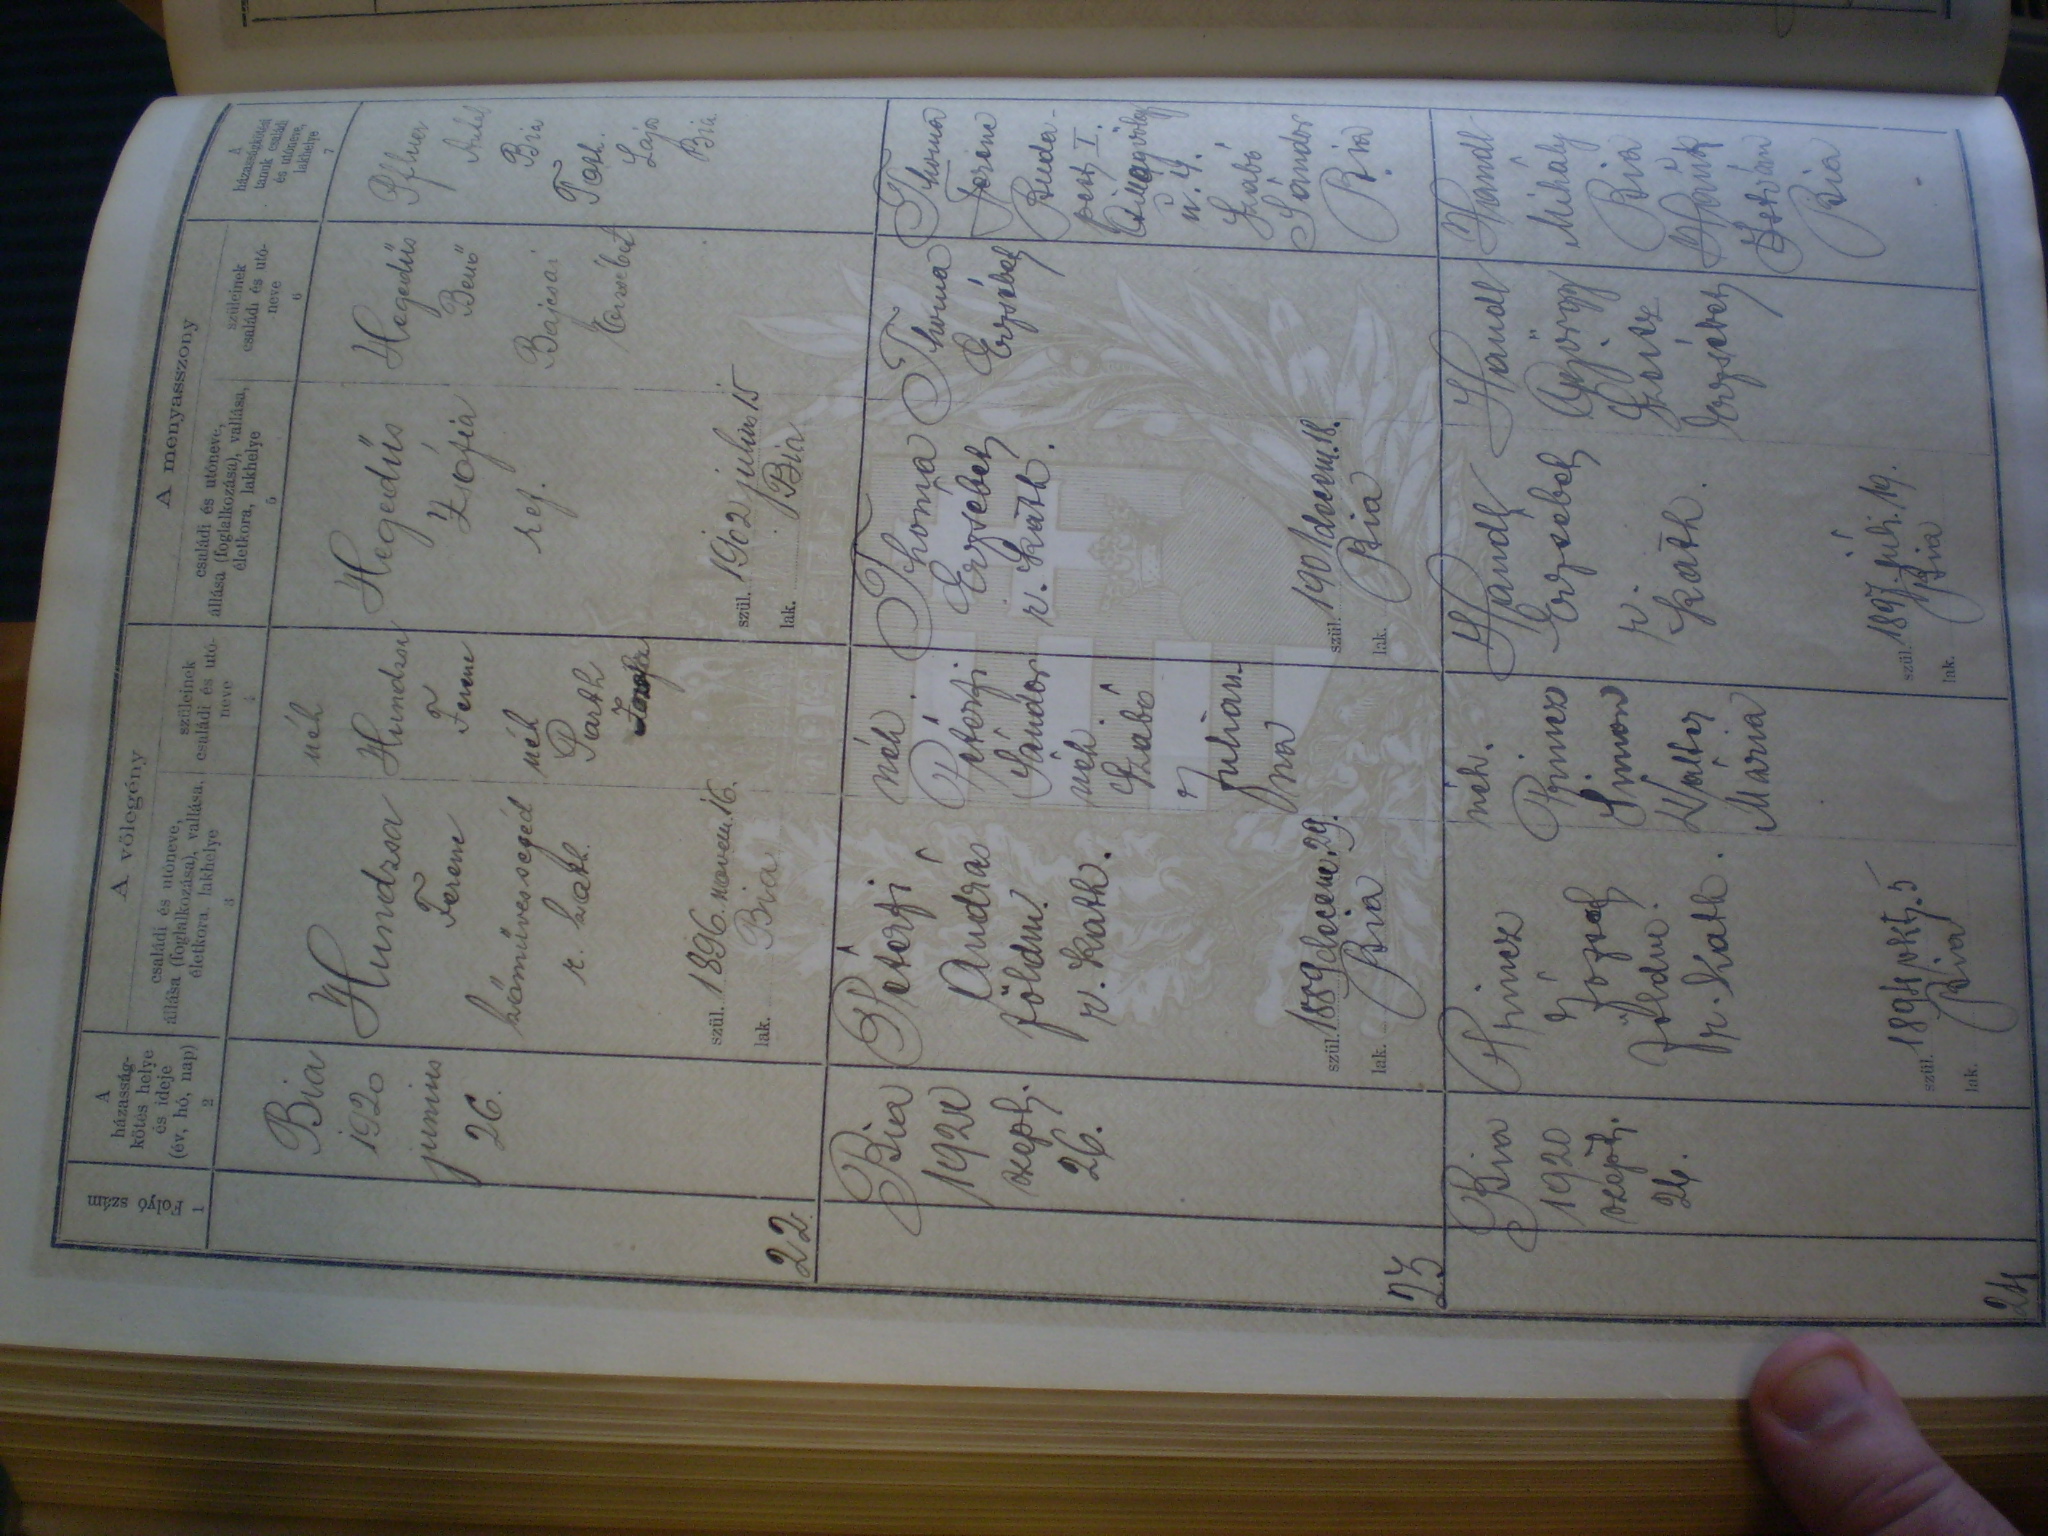 A menyasszony
A vőlegény
Folyó
szám
1
A
házasság-
kötés helye
és ideje
(év, hó, nap)
2
családi és utóneve,
állása (foglalkozása), vallása,
életkora, lakhelye
3
szüleinek
családi és utó-
neve
4
családi és utóneve,
állása (foglalkozása), vallása,
életkora, lakhelye
5
szüleinek
családi és utó-
neve
6
A
házasságkötési
tanuk családi
és utóneve,
lakhelye
7
22.
Bia
1920
junius
26.
Hundsa
Ferenc
kőművessegéd
r. kath.
szül. 1896. novem. 16.
lak. Bia
néh
Hundsa
Ferenc
néh
Parth
Hegedűs
Zsófia
ref.
szül. 1902 julius 15
lak. Bia
Hegedűs
Benő
Bajcsai
Erzsébet
Pfluer
Bia
Tóth.
Lajos
Bia
23
Bia
1920
szept.
26.
Péterfi
András
földm.
r. kath.
szül. 1889 decem. 29.
lak. Bia
néh.
Péterfi
Sándor
néh
Szabó
Julian-
na
Thoma
Erzsébet
r. kath.
szül. 1901 decem. 18.
lak. Bia
Thoma
Erzsébet
Thoma
Ferenc
Buda-
pest I.
u. 4.
Szabó
Sándor
Bia
24
Bia
1920
szept.
26.
Princz
József
földmű.
r. kath.
szül. 1894 okt. 5
lak. Bia
néh.
Princz
Simon
Walter
Mária
Handl
Erzsébet
r.
kath.
szül. 1897. juli. 19.
lak. Bia
Handl
György
Erzsébet
Handl
Mihály
Bia
István
Bia